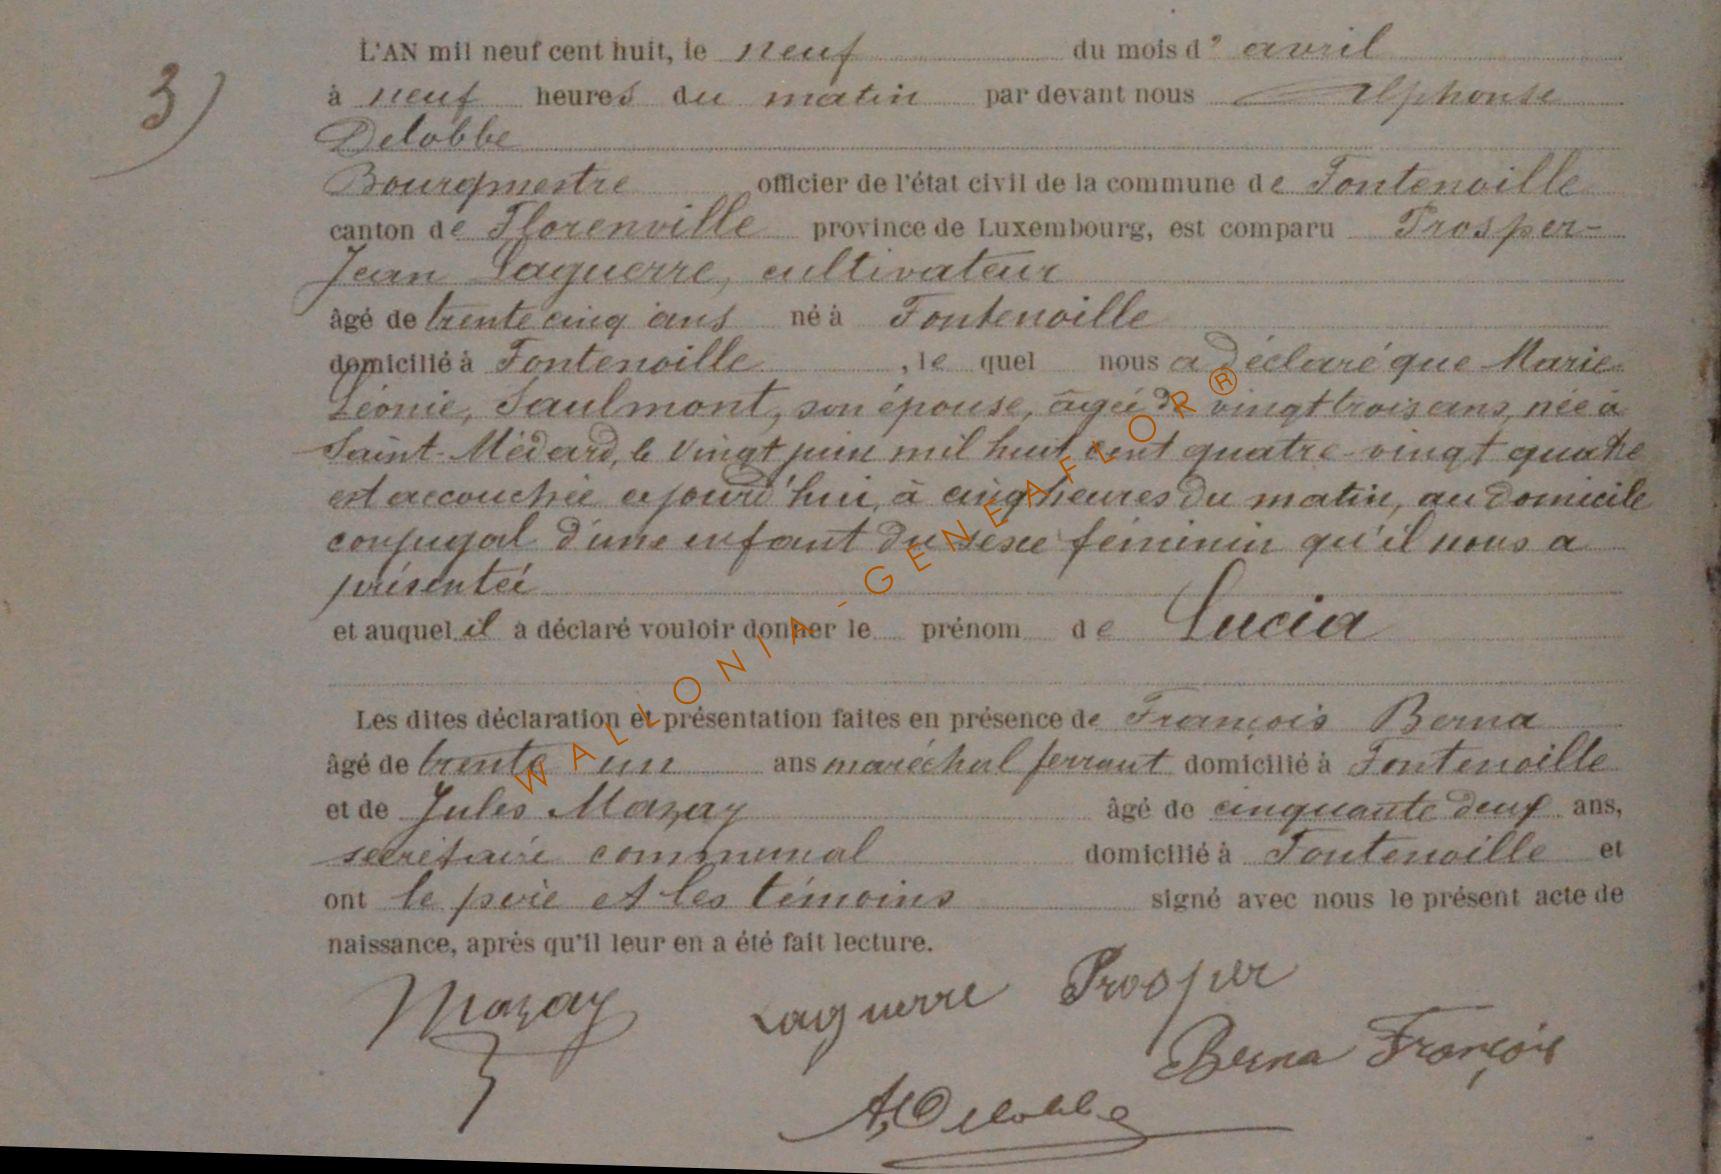 3)
L'AN mil neuf cent huit, le neuf du mois d' avril
à neuf heures du matin par devant nous Alphonse
Delobbe
Bourgmestre officier de l'état civil de la commune de Fontenoille
canton de Florenville province de Luxembourg, est comparu Prosper-
Jean Laguerre, cultivateur
âgé de trente cinq ans né à Fontenoille
domicilié à Fontenoille, le quel nous a déclaré que Marie
Léonie, Saulmont, son épouse, âgée de vingt trois ans, née à
Saint-Médard, le vingt juin mil huit cent quatre-vingt quatre
est accouchée aujourd'hui, à cinq heures du matin, au domicile
conjugal d'une enfant du sexe féminin qu'il nous a
présentée
et auquel il a déclaré vouloir donner le prénom de Lucia
Les dites déclaration et présentation faites en présence de François Berna
âgé de trente un ans maréchal ferrant domicilié à Fontenoille
et de Jules Mazay âgé de cinquante deux ans,
secrétaire communal domicilié à Fontenoille et
ont le père et les témoins signé avec nous le présent acte de
naissance, après qu'il leur en a été fait lecture.
Mazay Laguerre Prosper
Berna François
A, Delobbe
WALLONIA-GENEAFLOR®